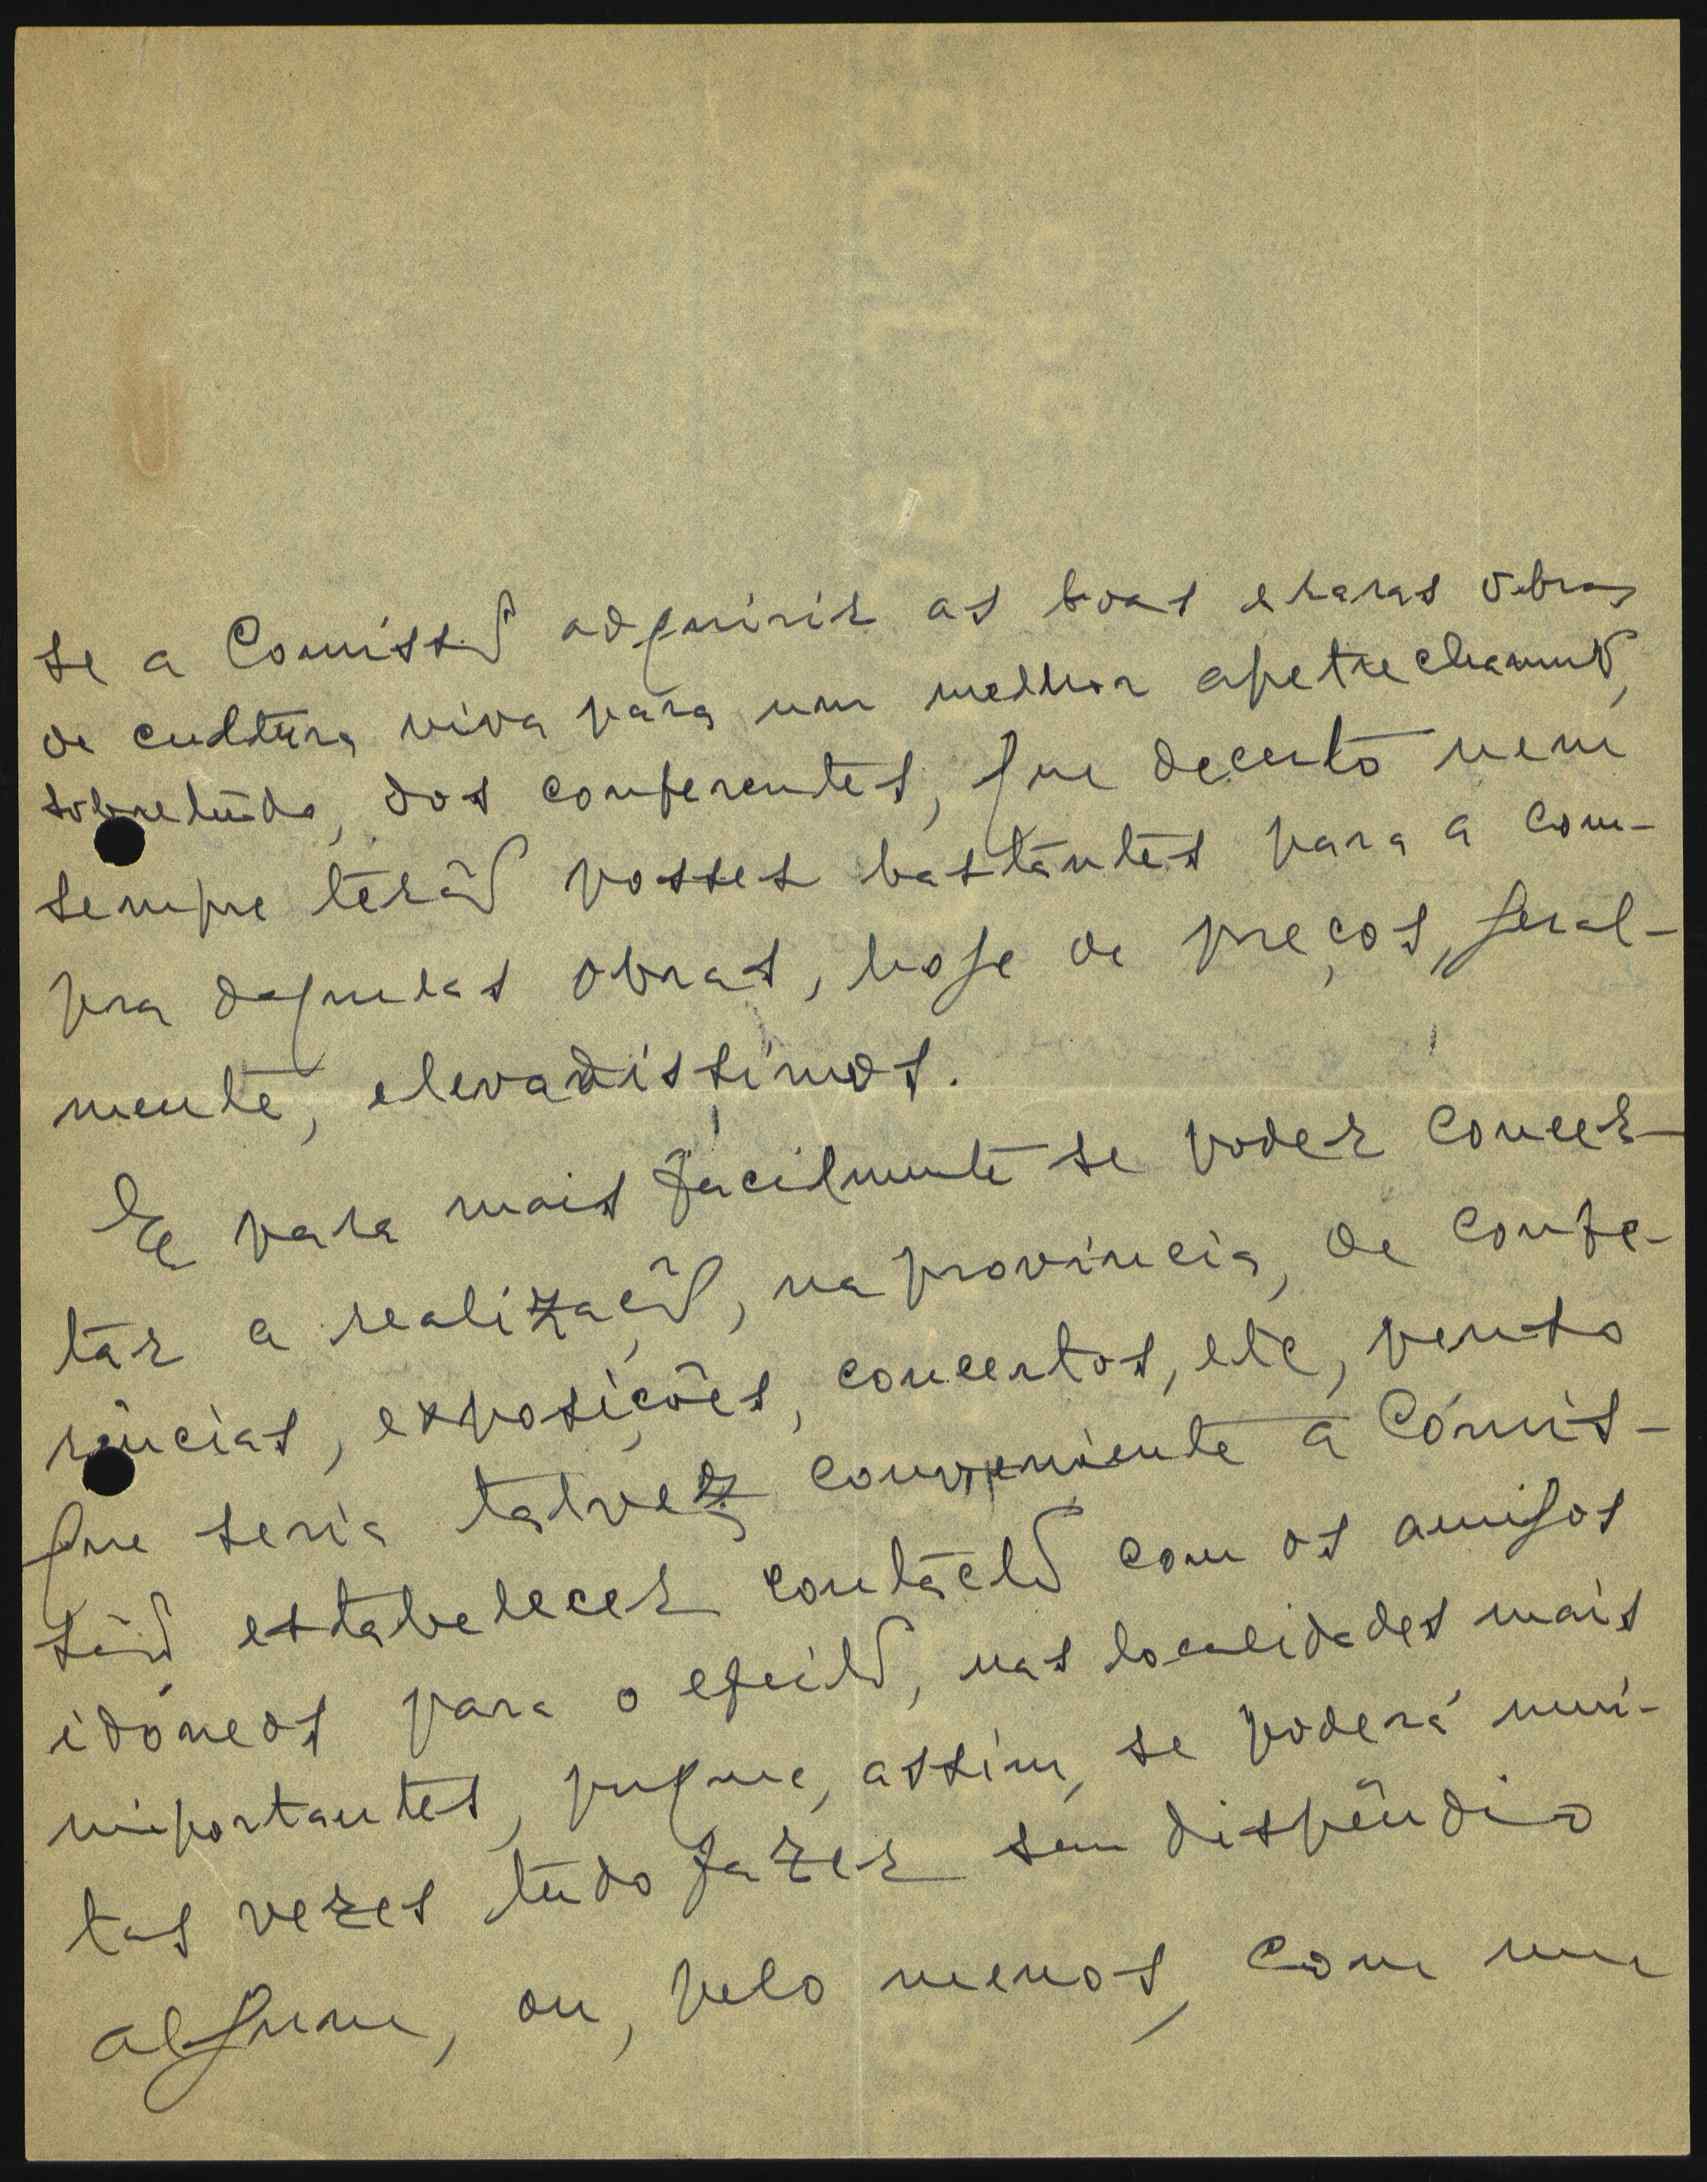 se a Comissão adquirir as boas e raras obras
de cultura viva para um melhor apetrechamento,
sobretudo, dos conferentes, que decerto nem
sempre terão posses bastantes para a com-
pra daquelas obras, hoje de preços, geral-
mente, elevadíssimos.
E para mais fàcilmente se poder concer-
tar a realização, na província, de confe-
rências, exposições, concertos, etc, penso
que seria talvez conveniente a Comis-
são estabelecer contacto com os amigos
idóneos para o efeito, nas localidades mais
importantes, porque, assim, se poderá mui-
tas vezes tudo fazer sem dispêndio
algum, ou, pelo menos, com um